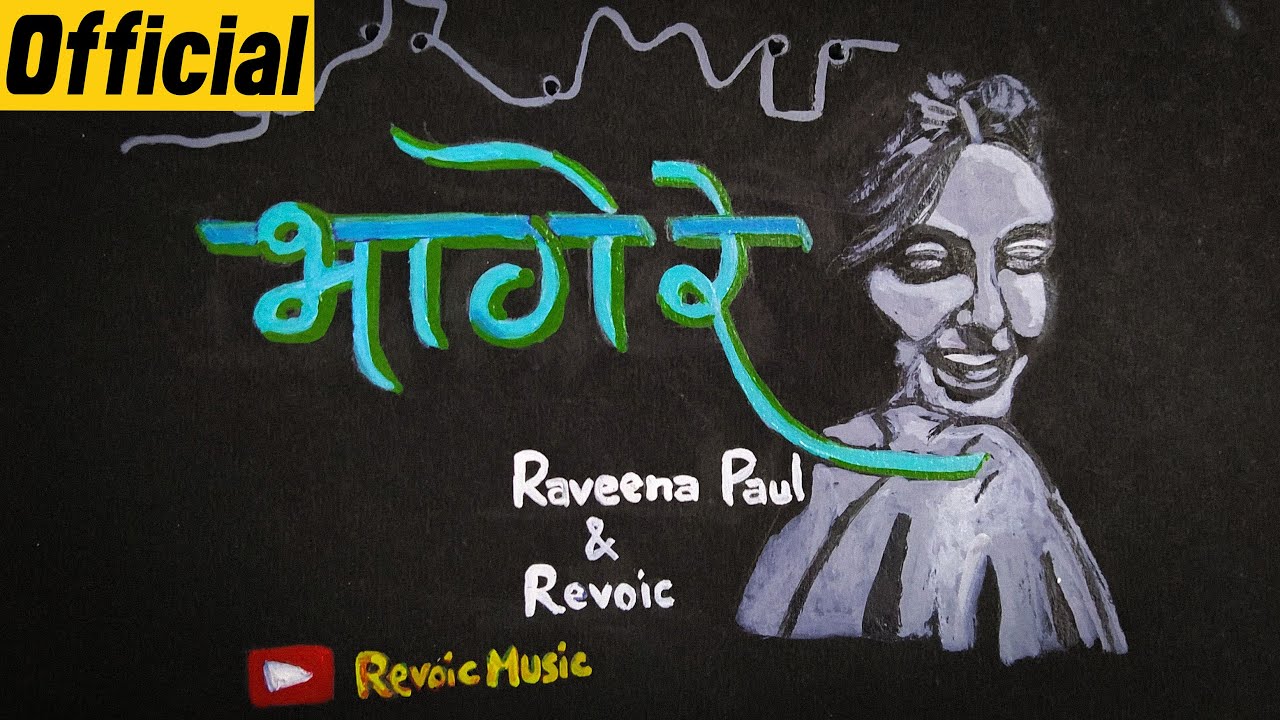 Official
भागे रे
Raveena Paul
&
Revoic
Revoic Music